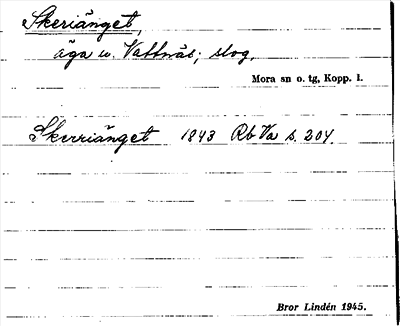 Skeriänget,
äga u. Vattnäs; slog.
Mora sn o. tg, Kopp. l.
Skerriänget 1843 Rb Va s. 204.
Bror Lindén 1945.